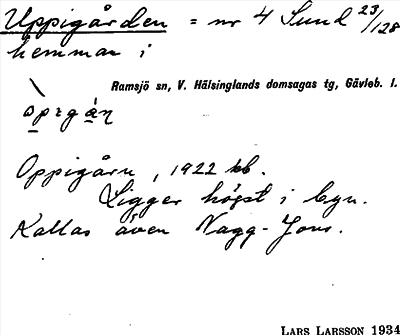 Uppigården = nr 4 Sund 23/128
hemman i
Ramsjö sn, V. Hälsinglands domsagas tg, Gävleb. l.
òpɩgá̀n
Oppigårn, 1922 kb.
Ligger högst i byn.
Kallas även Nagg-Jons.
LARS LARSSON 1934